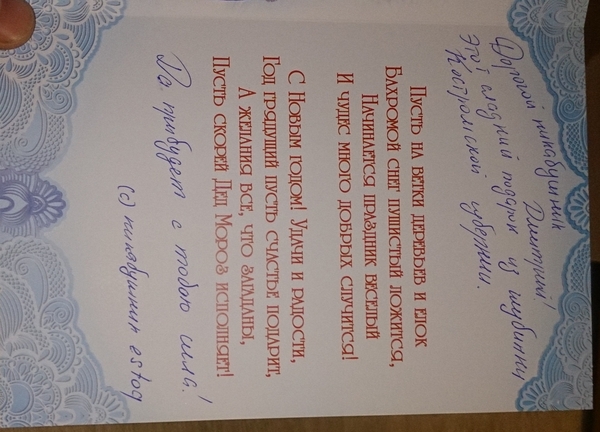 Дорогой пикабушник
Дмитрий!
Этот сладкий подарок из глубинки
Костромской губернии.
Пусть на ветки деревьев и елок
Бахромой снег пушистый ложится,
Начинается праздник веселый
И чудес много добрых случится!
С Новым годом! Удачи и радости,
Год грядущий пусть счастье подарит,
А желания все, что загаданы,
Пусть скорей Дед Мороз исполняет!
Да прибудет с тобою сила!
(с) пикабушник estog